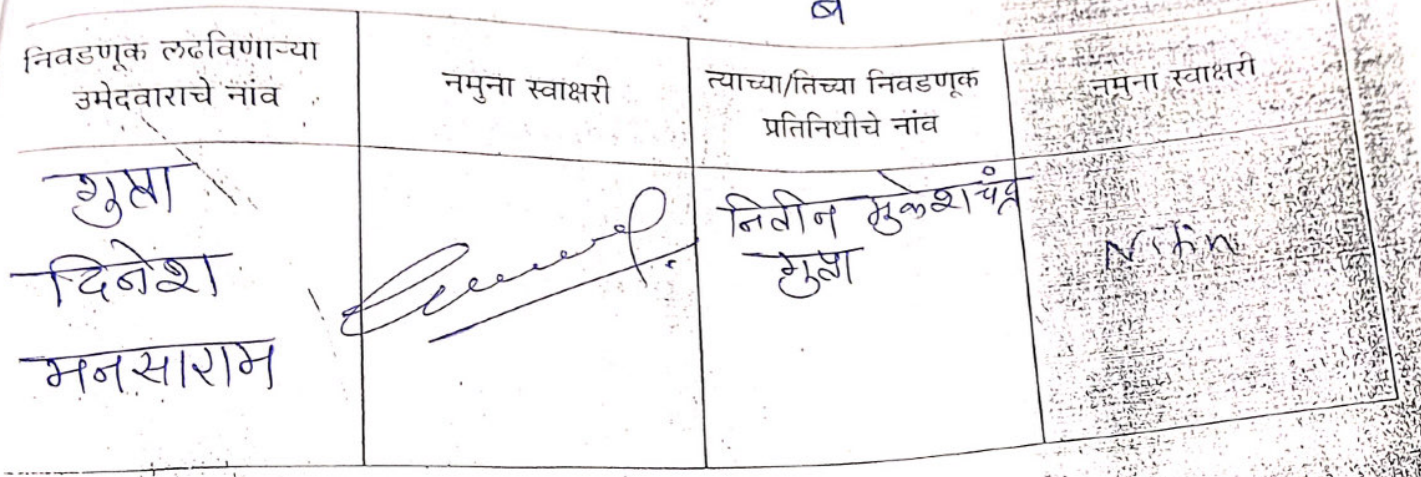 ब
निवडणूक लढविणाऱ्या
उमेदवाराचे नांव
नमुना स्वाक्षरी
त्याच्या/तिच्या निवडणूक
प्रतिनिधीचे नांव
नमुना स्वाक्षरी
गुप्ता
दिनेश
मनसाराम
नितीन मुकेशचंद्र
गुप्ता
Nitin